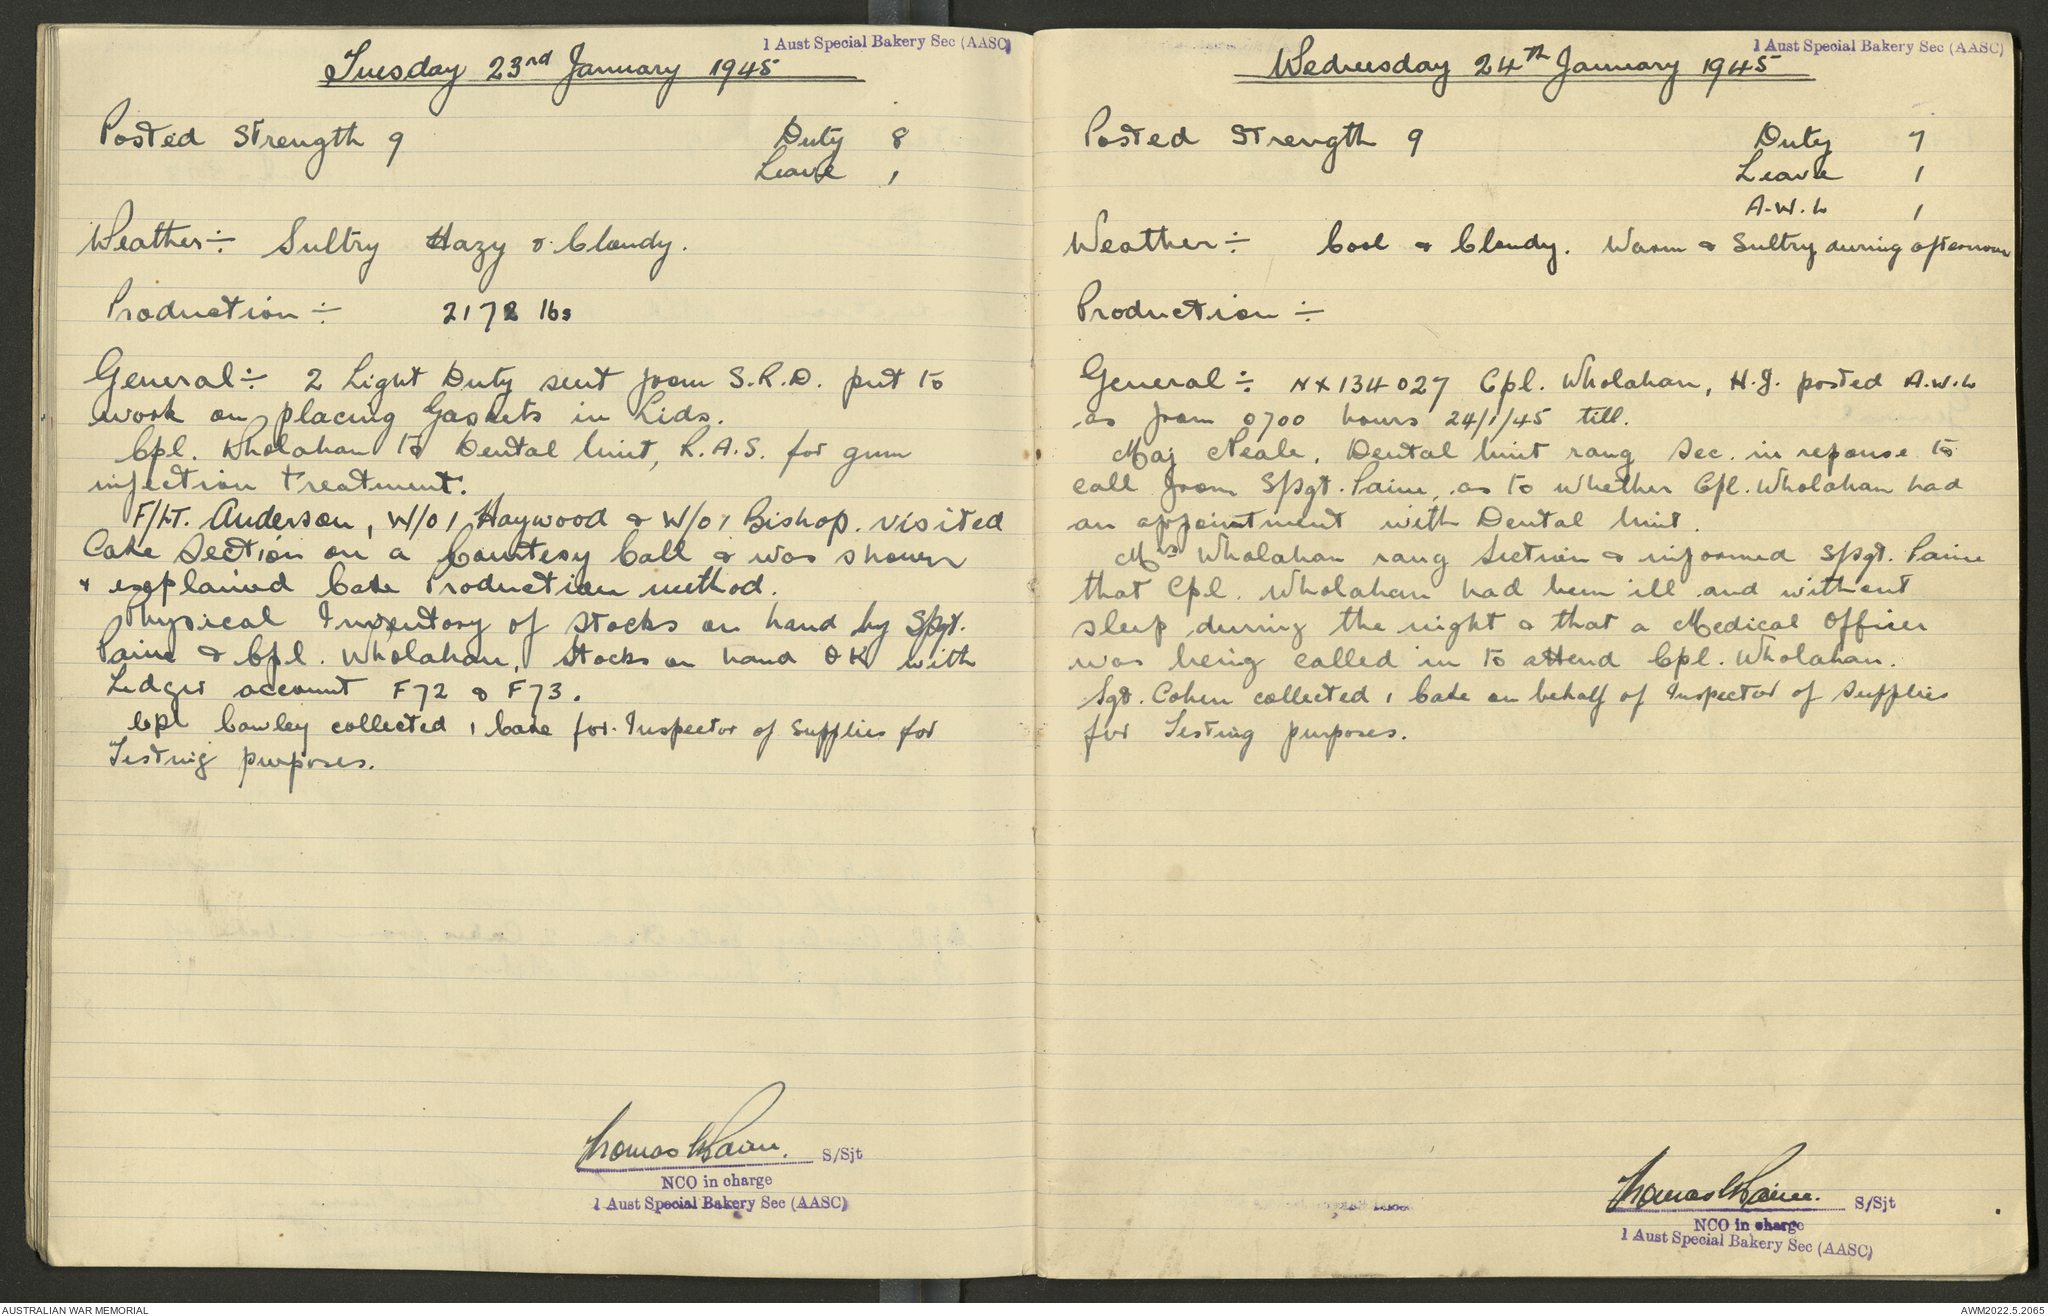 1 Aust Special Bakery Sec (AASC)
Tuesday 23rd January 1945
Posted Strength 9 Duty 8
Leave 1
Weather÷ Sultry Hazy & Cloudy.
Production ÷ 2172 lbs
General÷ 2 Light Duty sent from S.R.D. put to
work on placing Gaskets in Lids.
Cpl. Wholahan to Dental Unit, R.A.S. for gum
infection treatment.
F/LT. Anderson, W/O 1 Haywood & W/O 1 Bishop. visited
Cake Section on a Courtesy Call & was shown
& explained Cake Production method.
Physical Inventory of stocks on hand by S/Sgt.
Paine & Cpl. Wholahan, Stocks on hand OK with
Ledger account F72 & F73.
Cpl Cowley collected 1 Cake for Inspector of Supplies for
Testing purposes.
Thomas Paine. S/Sjt
NCO in charge
1 Aust Special Bakery Sec (AASC)
1 Aust Special Bakery Sec (AASC)
Wednesday 24th January 1945
Posted Strength 9 Duty 7
Leave 1
A.W.L 1
Weather ÷ Cool & Cloudy. Warm & Sultry during afternoon
Production ÷
General ÷ NX134027 Cpl. Wholahan, H.J. posted A.W.L
as from 0700 hours 24/1/45 till.
Maj Neale, Dental Unit rang Sec. in reponse to
call from S/Sgt. Paine, as to whether Cpl. Wholahan had
an appointment with Dental Unit.
Mrs Wholahan rang Section & informed S/Sgt. Paine
that Cpl. Wholahan had been ill and without
sleep during the night & that a Medical Officer
was being called in to attend Cpl. Wholahan.
Sgt. Cohen collected 1 Cake on behalf of Inspector of Supplies
for Testing purposes.
Thomas Paine. S/Sjt
NCO in charge
1 Aust Special Bakery Sec (AASC)
AUSTRALIAN WAR MEMORIAL
AWM2022.5.2065